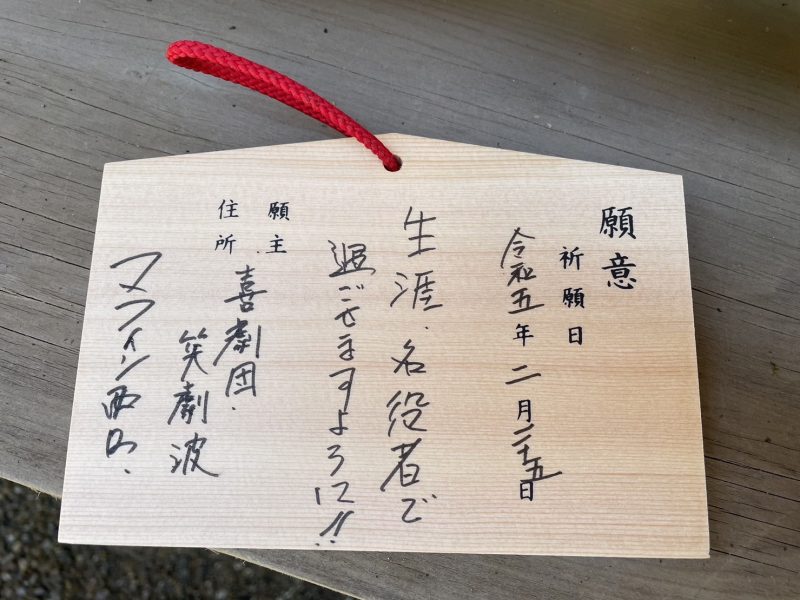 願意
祈願日
令和五年二月二十五日
生涯、名役者で
過ごせますように!!
願主
住所
喜劇団、
笑劇波
マフィン西口、